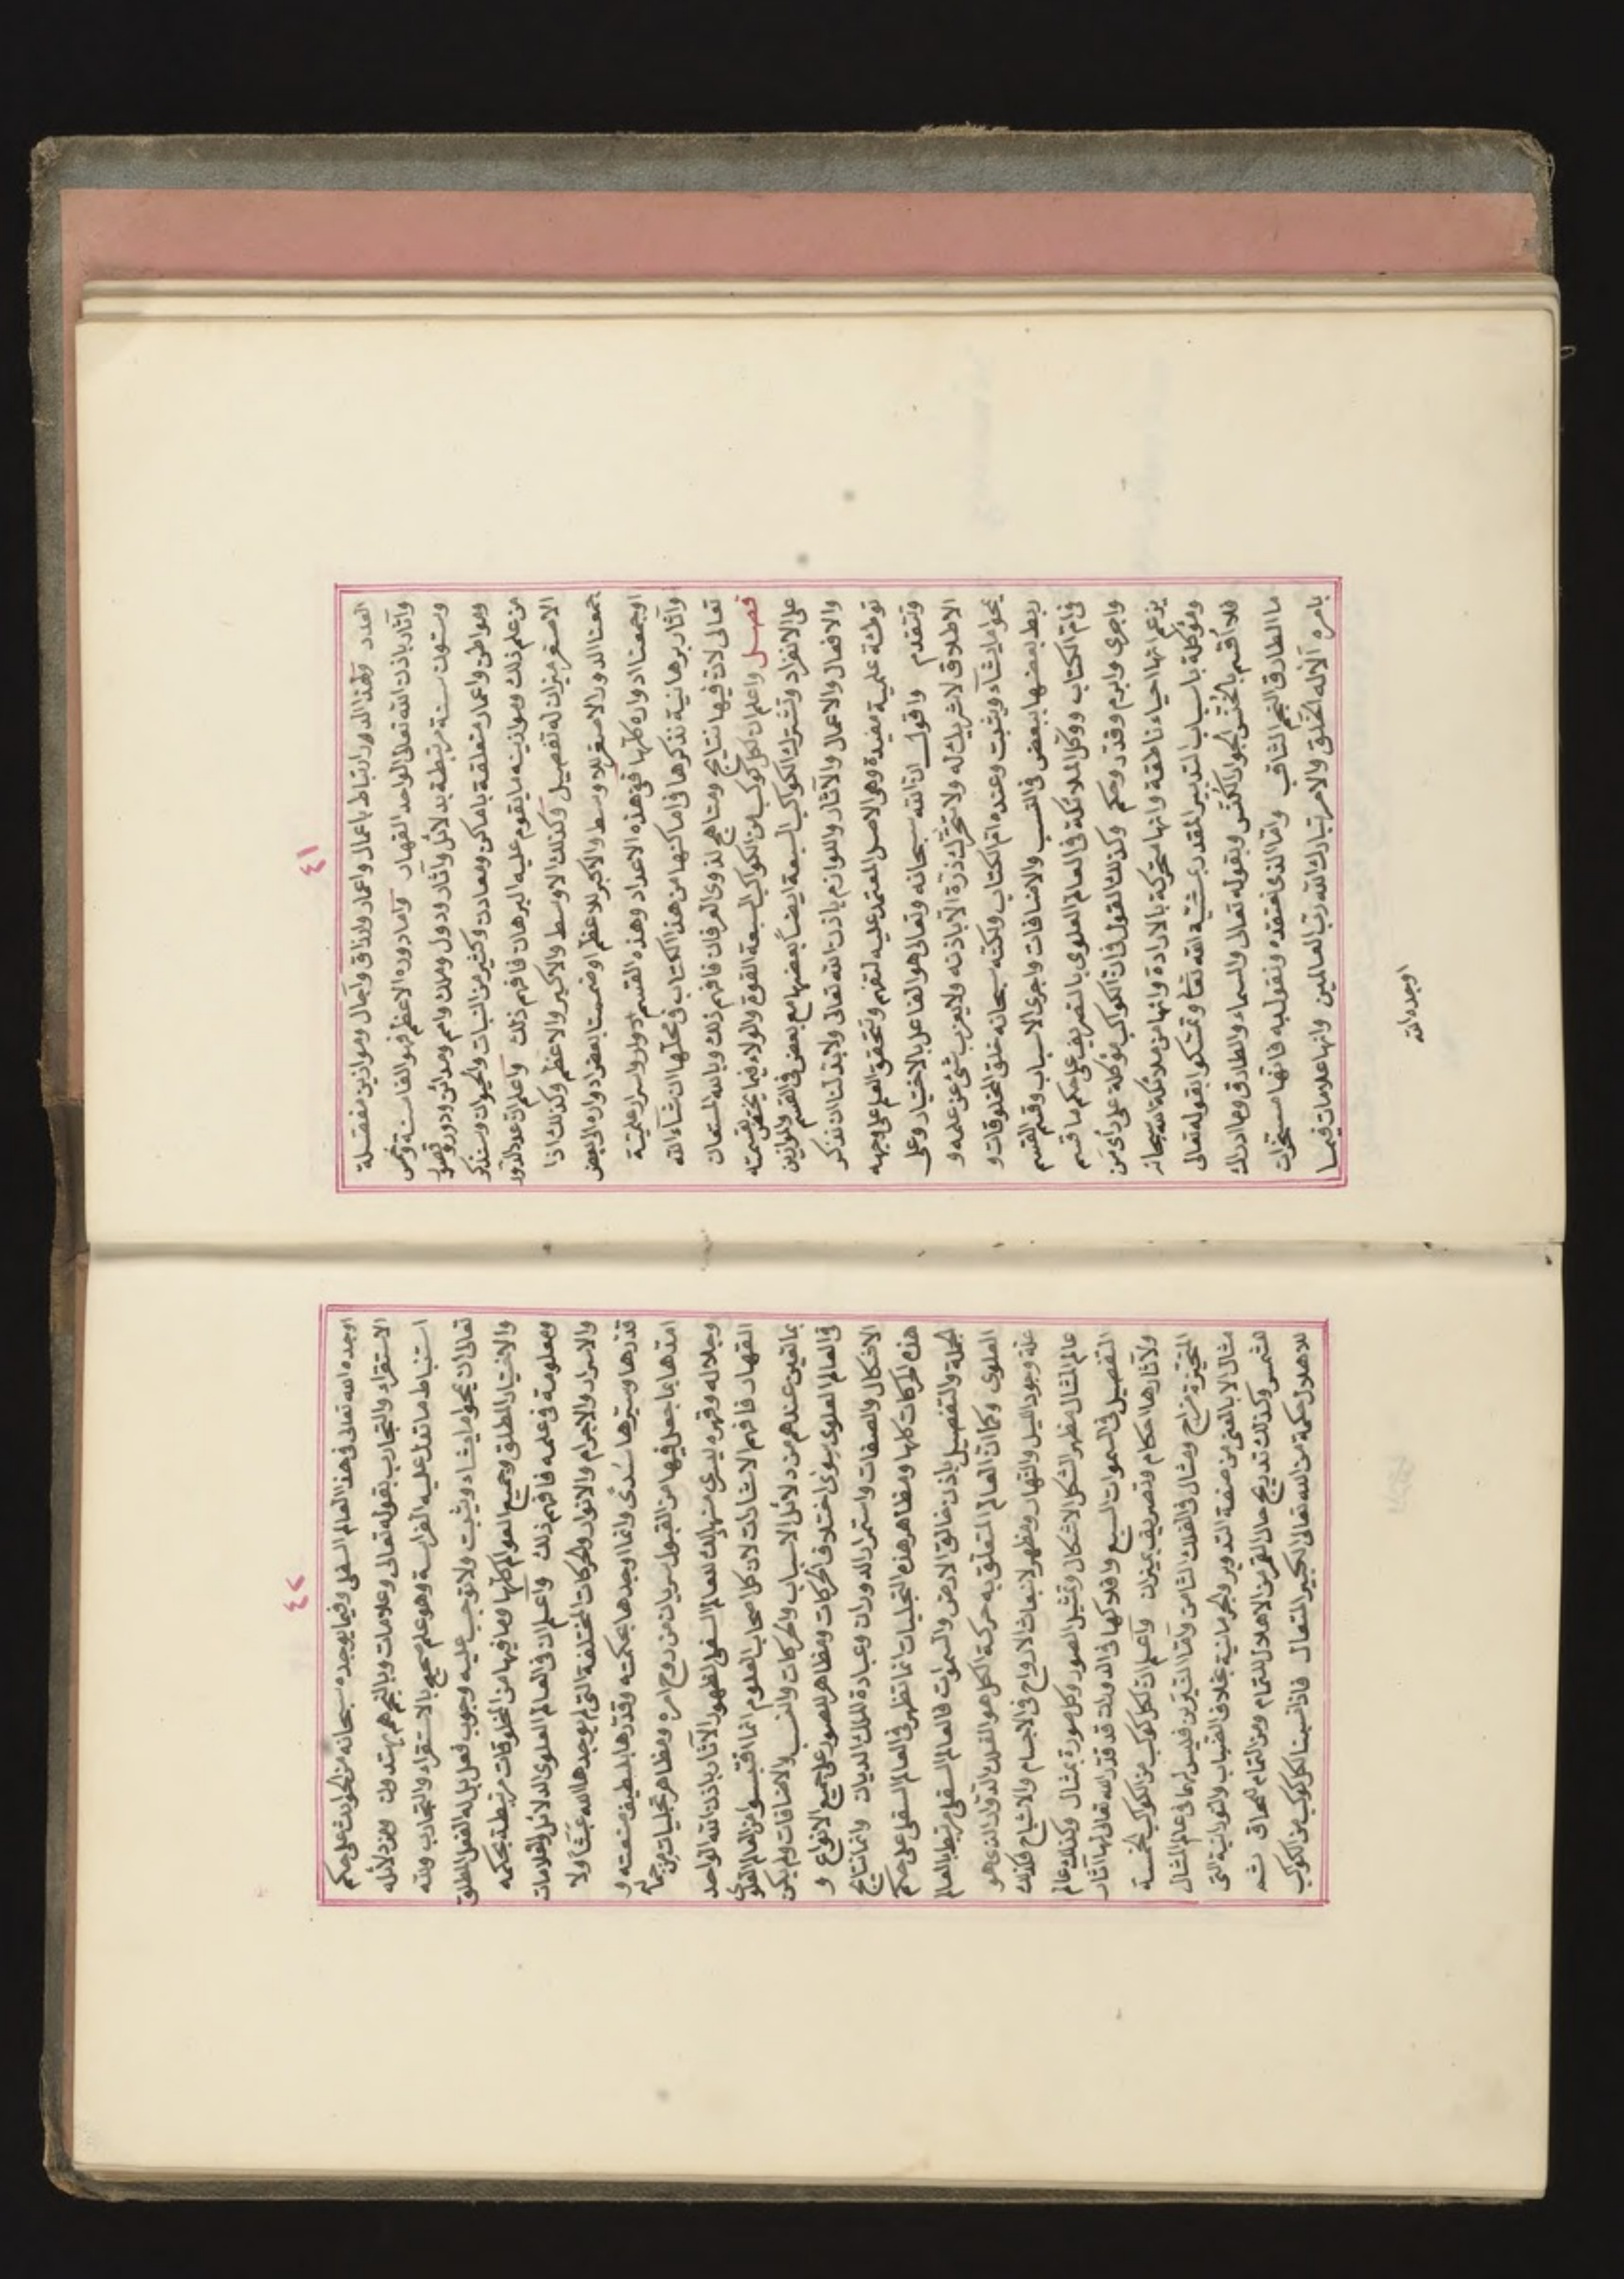 ٤١
العدد ولهذا الدور ارتباط باعمال واعمار وارزاق وآجال وموازين مفصلة
وآثار باذن الله تعالى الواحد القهار واما دوره الاعظم فهو الف سنة وخمس
وستون سنة مرتبطة بدلائل وآثار ودول وملك وامم ومدائن ودور وقصور
ومواطن واعمار متعلقة باماكن ومعادن وكثير من النبات والحيوان وسنذكر
من علم ذلك وموازينه ما يقوم عليه البرهان فافهم ذلك واعلم ان عدد الدور
الاصغر ميزان له تفصيل وكذلك الاوسط والاكبر والاعظم وكذلك اذا
جمعنا الدور الاصغر للاوسط والاكبر للاعظم او ضممنا بعض ادواره الى بعض
او جمعنا ادواره كلها ففي هذه الاعداد وهذه القسم ادوار واسرار علمية
وآثار برهانية نذكرها في اماكنها من هذا الكتاب في محلها ان شاء الله
تعالى لان فيها نتايج ومناهج لذوى العرفان فافهم ذلك وبالله المستعان
فصل واعلم ان لكل كوكب من الكواكب السبعة القوة والولاء فيما يختص بقسمته
على الانفراد وتشترك الكواكب السبعة ايضا بعضها مع بعض في القسم والموازين
والافعال والاعمال والآثار واللوازم باذن الله تعالى ولا بد لنا ان نذكر
توطئة علمية مفيدة وهى الاصل المعتمد عليه لتفهم وتتحقق العلم على وجهه
وتقدم واقول ان الله سبحانه وتعالى هو الفاعل بالاختيار وعلى
الاطلاق لا شريك له ولا تتحرك ذرة الا باذنه ولا يعزب شئ عن علمه و
يمحو ما يشاء ويثبت وعنده ام الكتاب ولكنه سبحانه خلق المخلوقات و
ربط بعضها ببعض في النسب والاضافات واجرى الاسباب وقسم القسم
في ام الكتاب ووكل الملائكة في العالم العلوى بالتصريف على حكم ما قسم
واجرى وابرم وقدر وحكم وكذلك القول في ان الكواكب موكلة على رأى من
يزعم انها احياء ناطقة وانها متحركة بالارادة وانها من ملائكة الله سبحانه
وموكلة باسباب التدبير المقدر بمشية الله تعالى وتمسكوا بقوله تعالى
فلا اقسم بالخنس الجوار الكنس وبقوله تعالى والسماء والطارق وما ادراك
ما الطارق النجم الثاقب واما الذى نعتقده ونقول به فانها مسخرات
بامره الا له الخلق والامر تبارك الله رب العالمين وانها علامات فيما
اوجده الله
٤٢
اوجده الله تعالى في هذا العالم السفلى وفيما يوجده سبحانه من الحوادث على حكم
الاستقراء والتجارب بقوله تعالى وعلامات وبالنجم هم يهتدون ومن دلائله
استنباط ما تدل عليه الفراسة وهو علم صحيح بالاستقراء والتجارب ولله
تعالى ان يمحو ما يشاء ويثبت ولا توجب عليه وجوب فعل بل له الفعل المطلق
والاختيار المطلق وجميع العوالم كلها وما فيها من المخلوقات مرتبطة بحكمه
ومعلومة في علمه فافهم ذلك واعلم ان في العالم العلوى الدلائل والعلامات
والاسرار والاجرام والانوار والحركات المختلفة التى لم يوجدها الله عبثا ولا
قدرها وسيرها سدى وانما اوجدها بحكمته وقدرها بلطيف صنعته و
امدها بما جعل فيها من القبول سريان من روح امره ومظاهر تجليات من جماله
وجلاله وقهره ليسرى منها الى العالم السفلى لظهور الآثار باذن الله الواحد
القهار فافهم الاشارات لان كل اصحاب العلوم انما اقتبسوا من العالم العلوى
بما تعين عندهم من دلائل الاسباب والحركات والنسب والاضافات ولم يكن
في العالم العلوى سوى اختلاف الحركات ومظاهر الصور على جميع الانواع و
الاشكال والصفات واستمرار الدوران وعبادة الملك الديان وانما نتايج
هذه الحركات كلها ومظاهر هذه التجليات انما تظهر في العالم السفلى على حكم
الجملة والتفصيل باذن خالق الارض والسموات فالعالم السفلى مرتبط بالعالم
العلوى وكما ان العالم المتعلق به حركة الكل هو الفلك الدوار الذى هو
علة وجود الليل والنهار ومظهر لانبعاث الارواح في الاجسام والاشباح فكذلك
عالم المثال مظهر الشكل الاشكال وتمثيل الصور وكل صورة بمثال وكذلك عالم
التفصيل في السموات السبع وافلاكها في الدورات قد قدر الله تعالى لها آثار
ولآثارها احكام وتصريف بميزان واعلم ان لكل كوكب من الكواكب الخمسة
المتحيزة مزاج ومثال في الفلك الثامن واما النيرين فليس لهما في عالم المثال
مثال الا بالفى من صفة التدوير والجرمانية بخلاف الضياء والنورانية التى
للشمس وكذلك تدريج حال القمر من الاهلال للتمام ومن التمام للمحاق ثم
للاهلال حكمة من الله تعالى الكبير المتعال فاذا نسبنا لكل كوكب من الكواكب